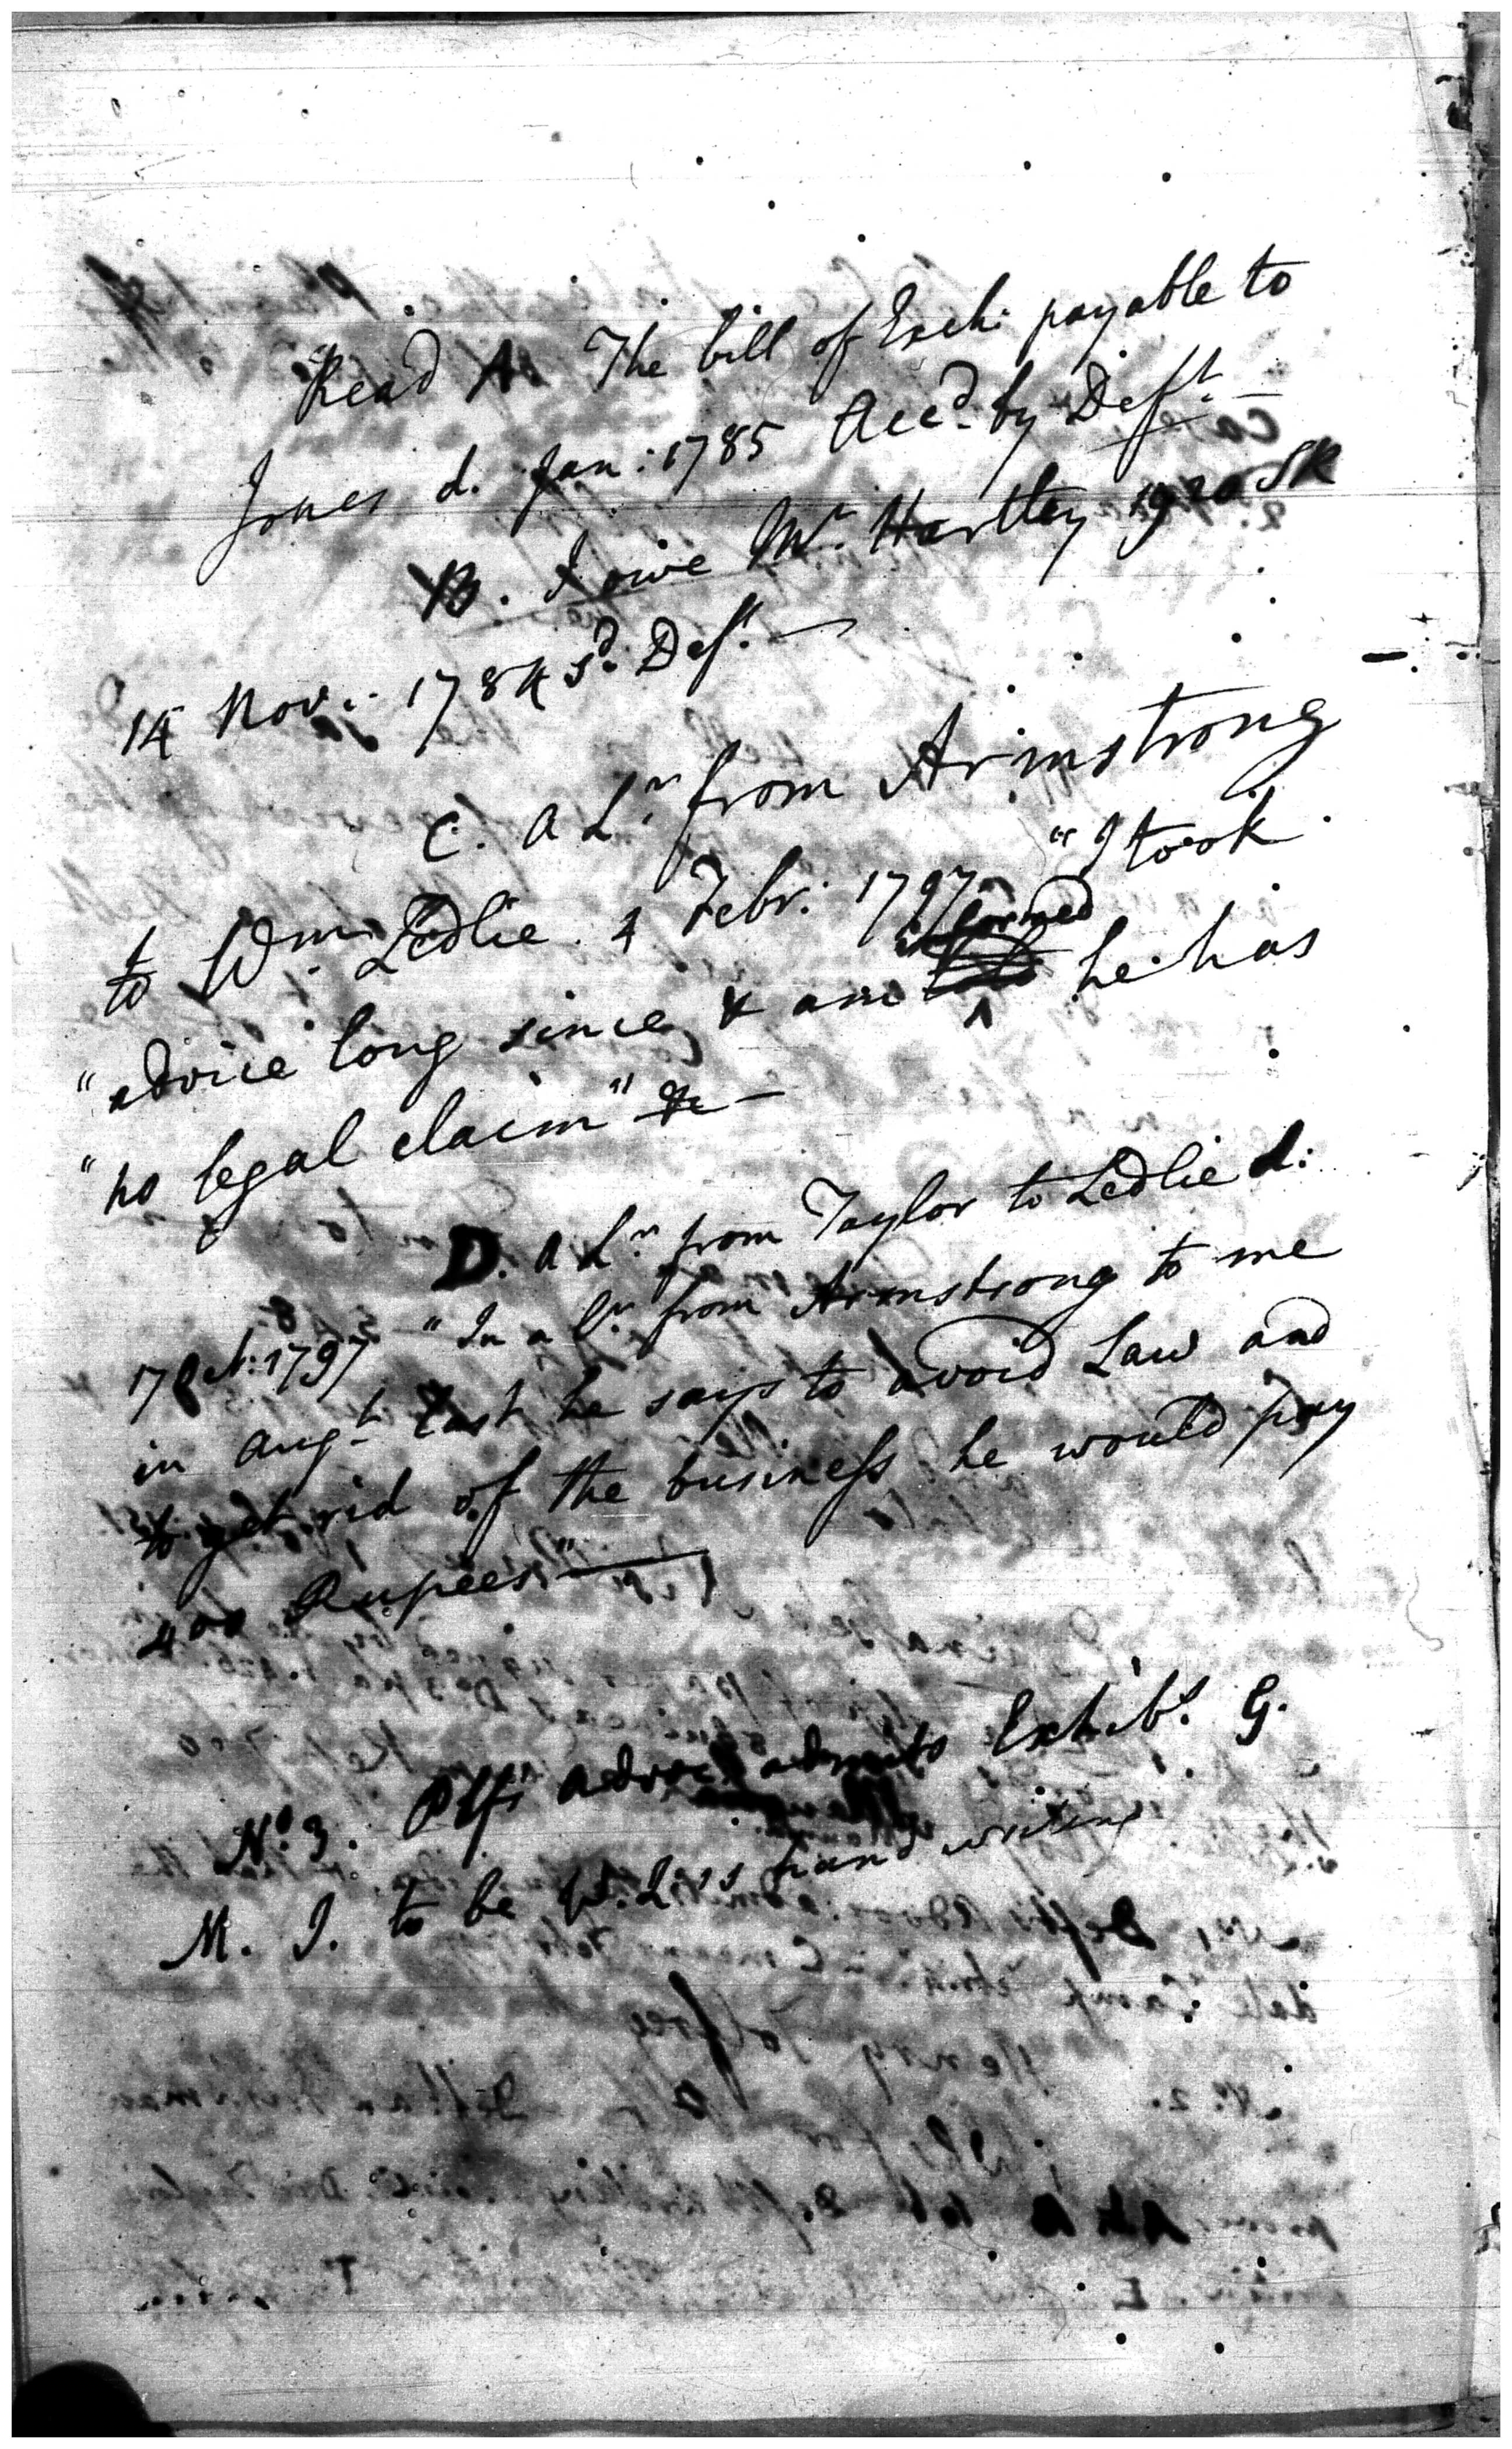 Read A. The bill of Exch: payable to
Jones d. Jan: 1785 Acc.d by Def.t —
B. I owe M.r Hartley 1920 SR
14 Nov.: 1784 s.d Def.t —
C. A L.r from Armstrong
to W.m Ledlie. 4 Febr: 1797 "I took
"advice long since, & am informed he has
"no legal claim" &c —
D. A L.r from Taylor to Ledlie d:
17 Oct: 1797 "In a L.r from Armstrong to me
in Aug.t last he says to avoid Law and
to get rid of the business he would pay
400 Rupees" —
N.o 3. Plfs Advoc.t admits Exhib.s G.
M. J. to be W. L's hand writing